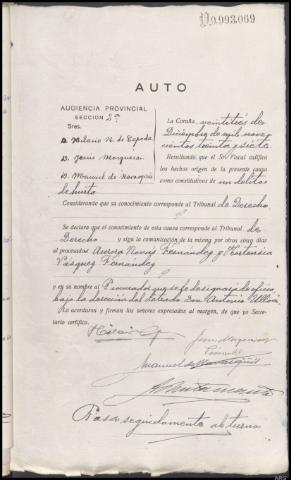 0.993.069
AUTO
AUDIENCIA PROVINCIAL
SECCION 2ª
Sres.
D. Hilario N. de Cepeda
D. Jesús
D. Manuel de
La Coruña veintitrés de
Diciembre de mil nove-
cientos treinta y siete
Resultando que el Sr. Fiscal califica
los hechos origen de la presente causa
como constitutivos de un delito
de hurto
Considerando que su conocimiento corresponde al Tribunal de Derecho
Se declara que el conocimiento de esta causa corresponde al Tribunal de
Derecho y siga la comunicación de la misma por otros cinco días
al procesados Aurora Fernández y Hortensia
Vázquez Fernández
y en su nombre al Procurador que se le designará de oficio
bajo la dirección del Letrado Don Antonio Ulloa
Lo acordaron y firman los señores expresados al margen, de que yo Secre-
tario certifico.
Pasa seguidamente al turno